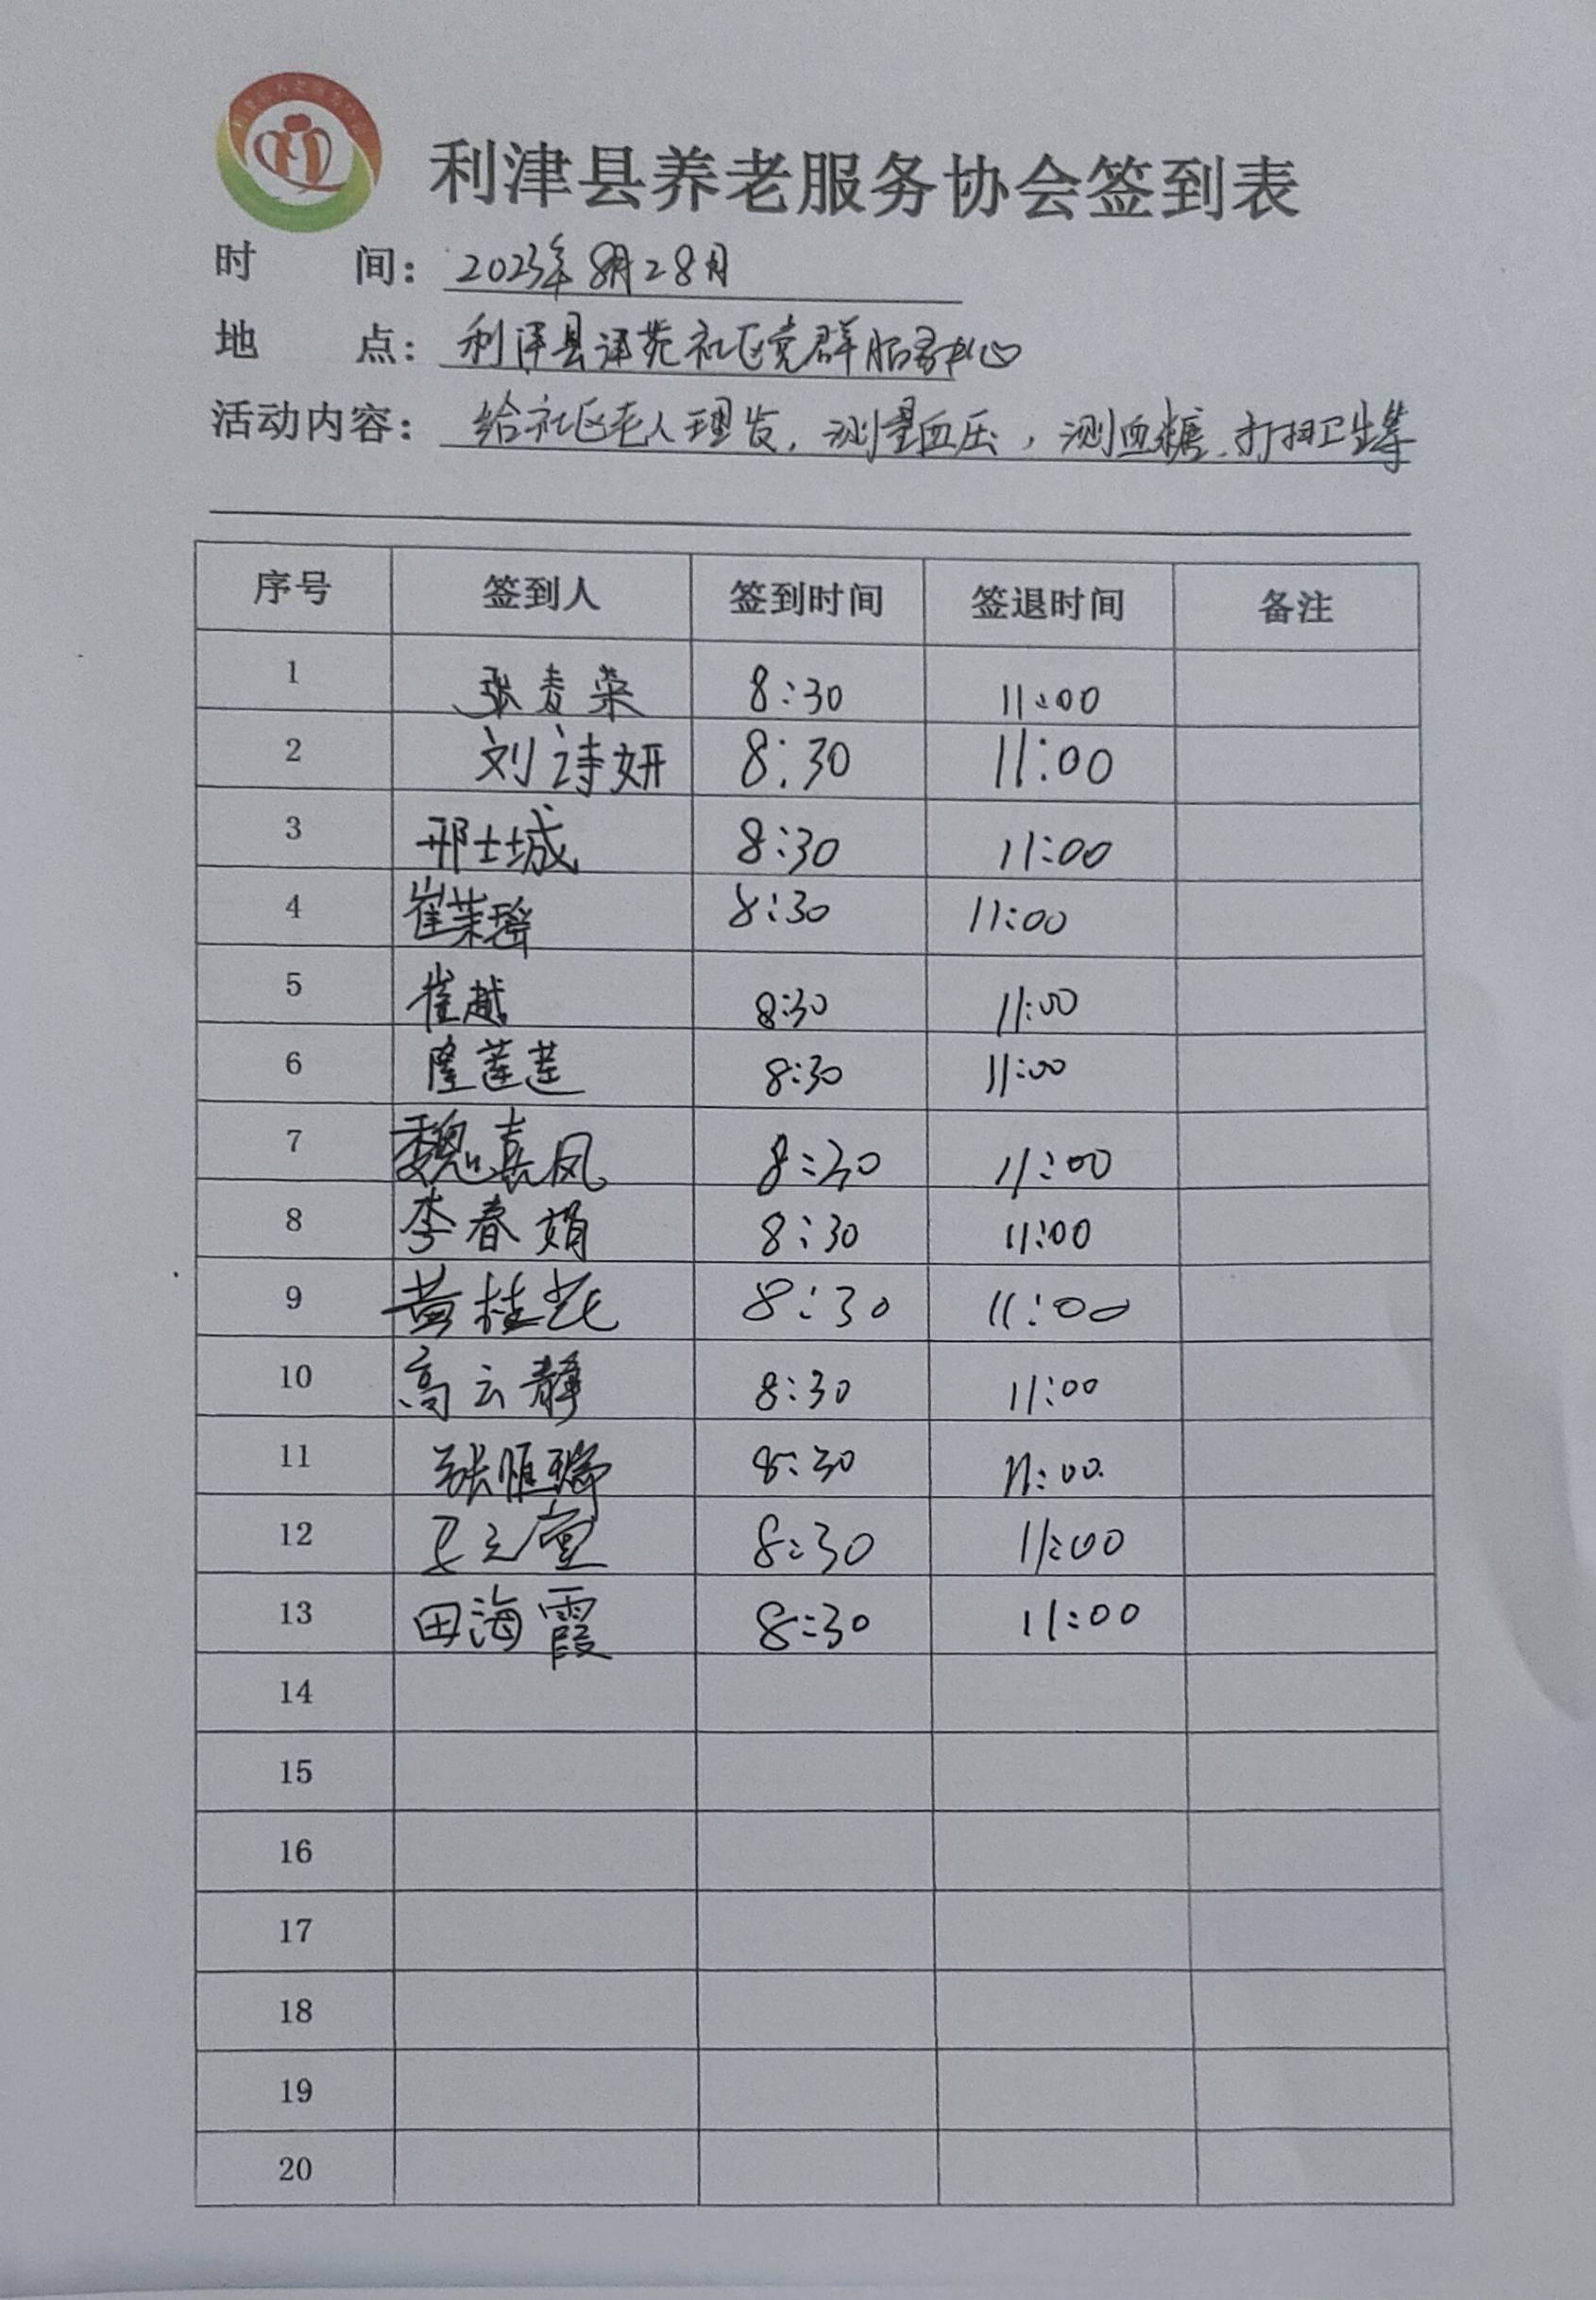 利津县养老服务协会签到表
时 间： 2023年8月28日
地 点： 利津县津苑社区党群服务中心
活动内容： 给社区老人理发，测量血压，测血糖、打扫卫生等
序号 签到人 签到时间 签退时间 备注
1 张麦荣 8:30 11:00
2 刘诗妍 8:30 11:00
3 邢士城 8:30 11:00
4 崔茉瑶 8:30 11:00
5 崔越 8:30 11:00
6 隆莲莲 8:30 11:00
7 魏嘉凤 8:30 11:00
8 李春娟 8:30 11:00
9 黄桂花 8:30 11:00
10 高云静 8:30 11:00
11 张 瑞 8:30 11:00
12 8:30 11:00
13 田海霞 8:30 11:00
14
15
16
17
18
19
20